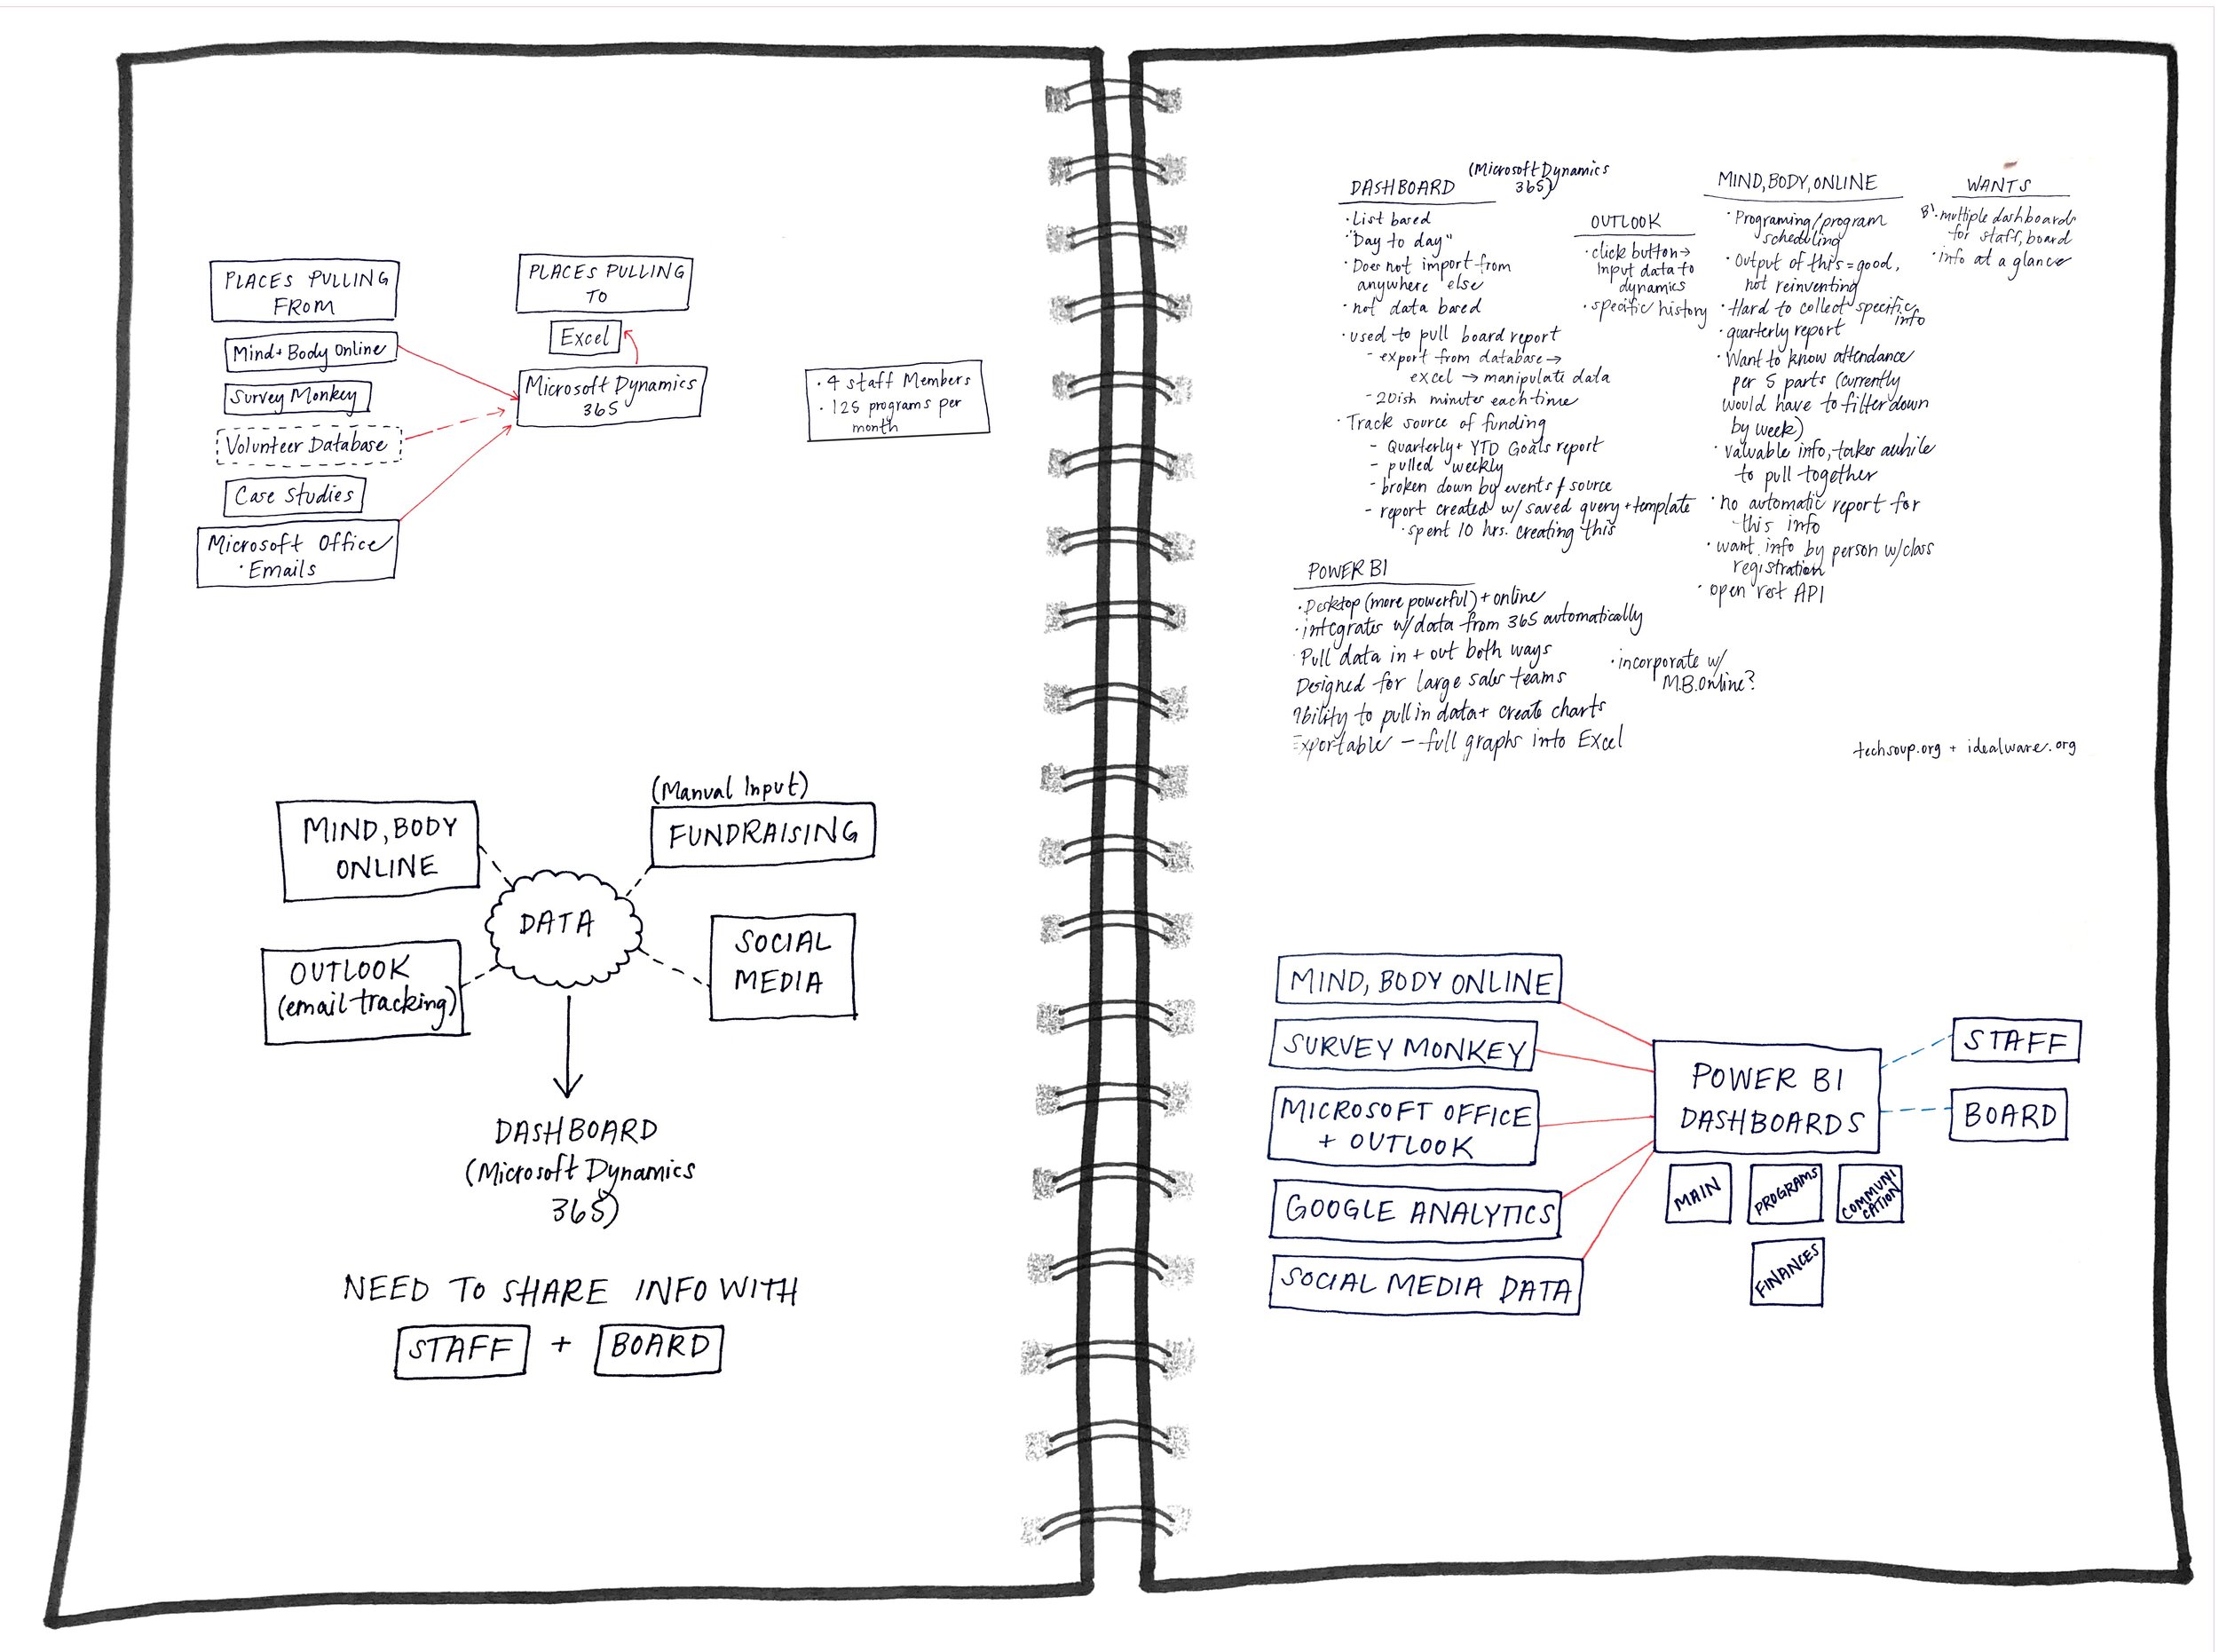 PLACES PULLING
FROM
Mind+Body Online
Survey Monkey
Volunteer Database
Case Studies
Microsoft Office
· Emails
PLACES PULLING
TO
Excel
Microsoft Dynamics
365
· 4 Staff Members
· 125 programs per
month
MIND, BODY
ONLINE
(Manual Input)
FUNDRAISING
DATA
OUTLOOK
(email tracking)
SOCIAL
MEDIA
DASHBOARD
(Microsoft Dynamics
365)
NEED TO SHARE INFO WITH
STAFF + BOARD
DASHBOARD
(Microsoft Dynamics
365)
· List based
· "Day to day"
· Does not import from
anywhere else
· not data based
· used to pull board report
- export from database →
excel → manipulate data
- 20ish minutes each time
· Track source of funding
- Quarterly + YTD Goals report
- pulled weekly
- broken down by events + source
- report created w/ saved query + template
· spent 10 hrs. creating this
OUTLOOK
· click button →
Input data to
dynamics
· specific history
MIND, BODY, ONLINE
· Programing/program
scheduling
· Output of this = good,
not reinventing
· Hard to collect specific
info
· quarterly report
· Want to know attendance
per 5 parts (currently
would have to filter down
by week)
· valuable info, takes awhile
to pull together
· no automatic report for
this info
· want info by person w/class
registration
· open rest API
WANTS
· multiple dashboards
for staff, board
· info at a glance
POWER BI
· Desktop (more powerful) + online
· integrates w/data from 365 automatically
Pull data in + out both ways
Designed for large sales teams
Ability to pull in data + create charts
Exportable - full graphs into Excel
· incorporate w/
M.B.Online?
techsoup.org + idealware.org
MIND, BODY ONLINE
SURVEY MONKEY
MICROSOFT OFFICE
+ OUTLOOK
GOOGLE ANALYTICS
SOCIAL MEDIA DATA
POWER BI
DASHBOARDS
STAFF
BOARD
MAIN
PROGRAMS
COMMUNI
CATION
FINANCES